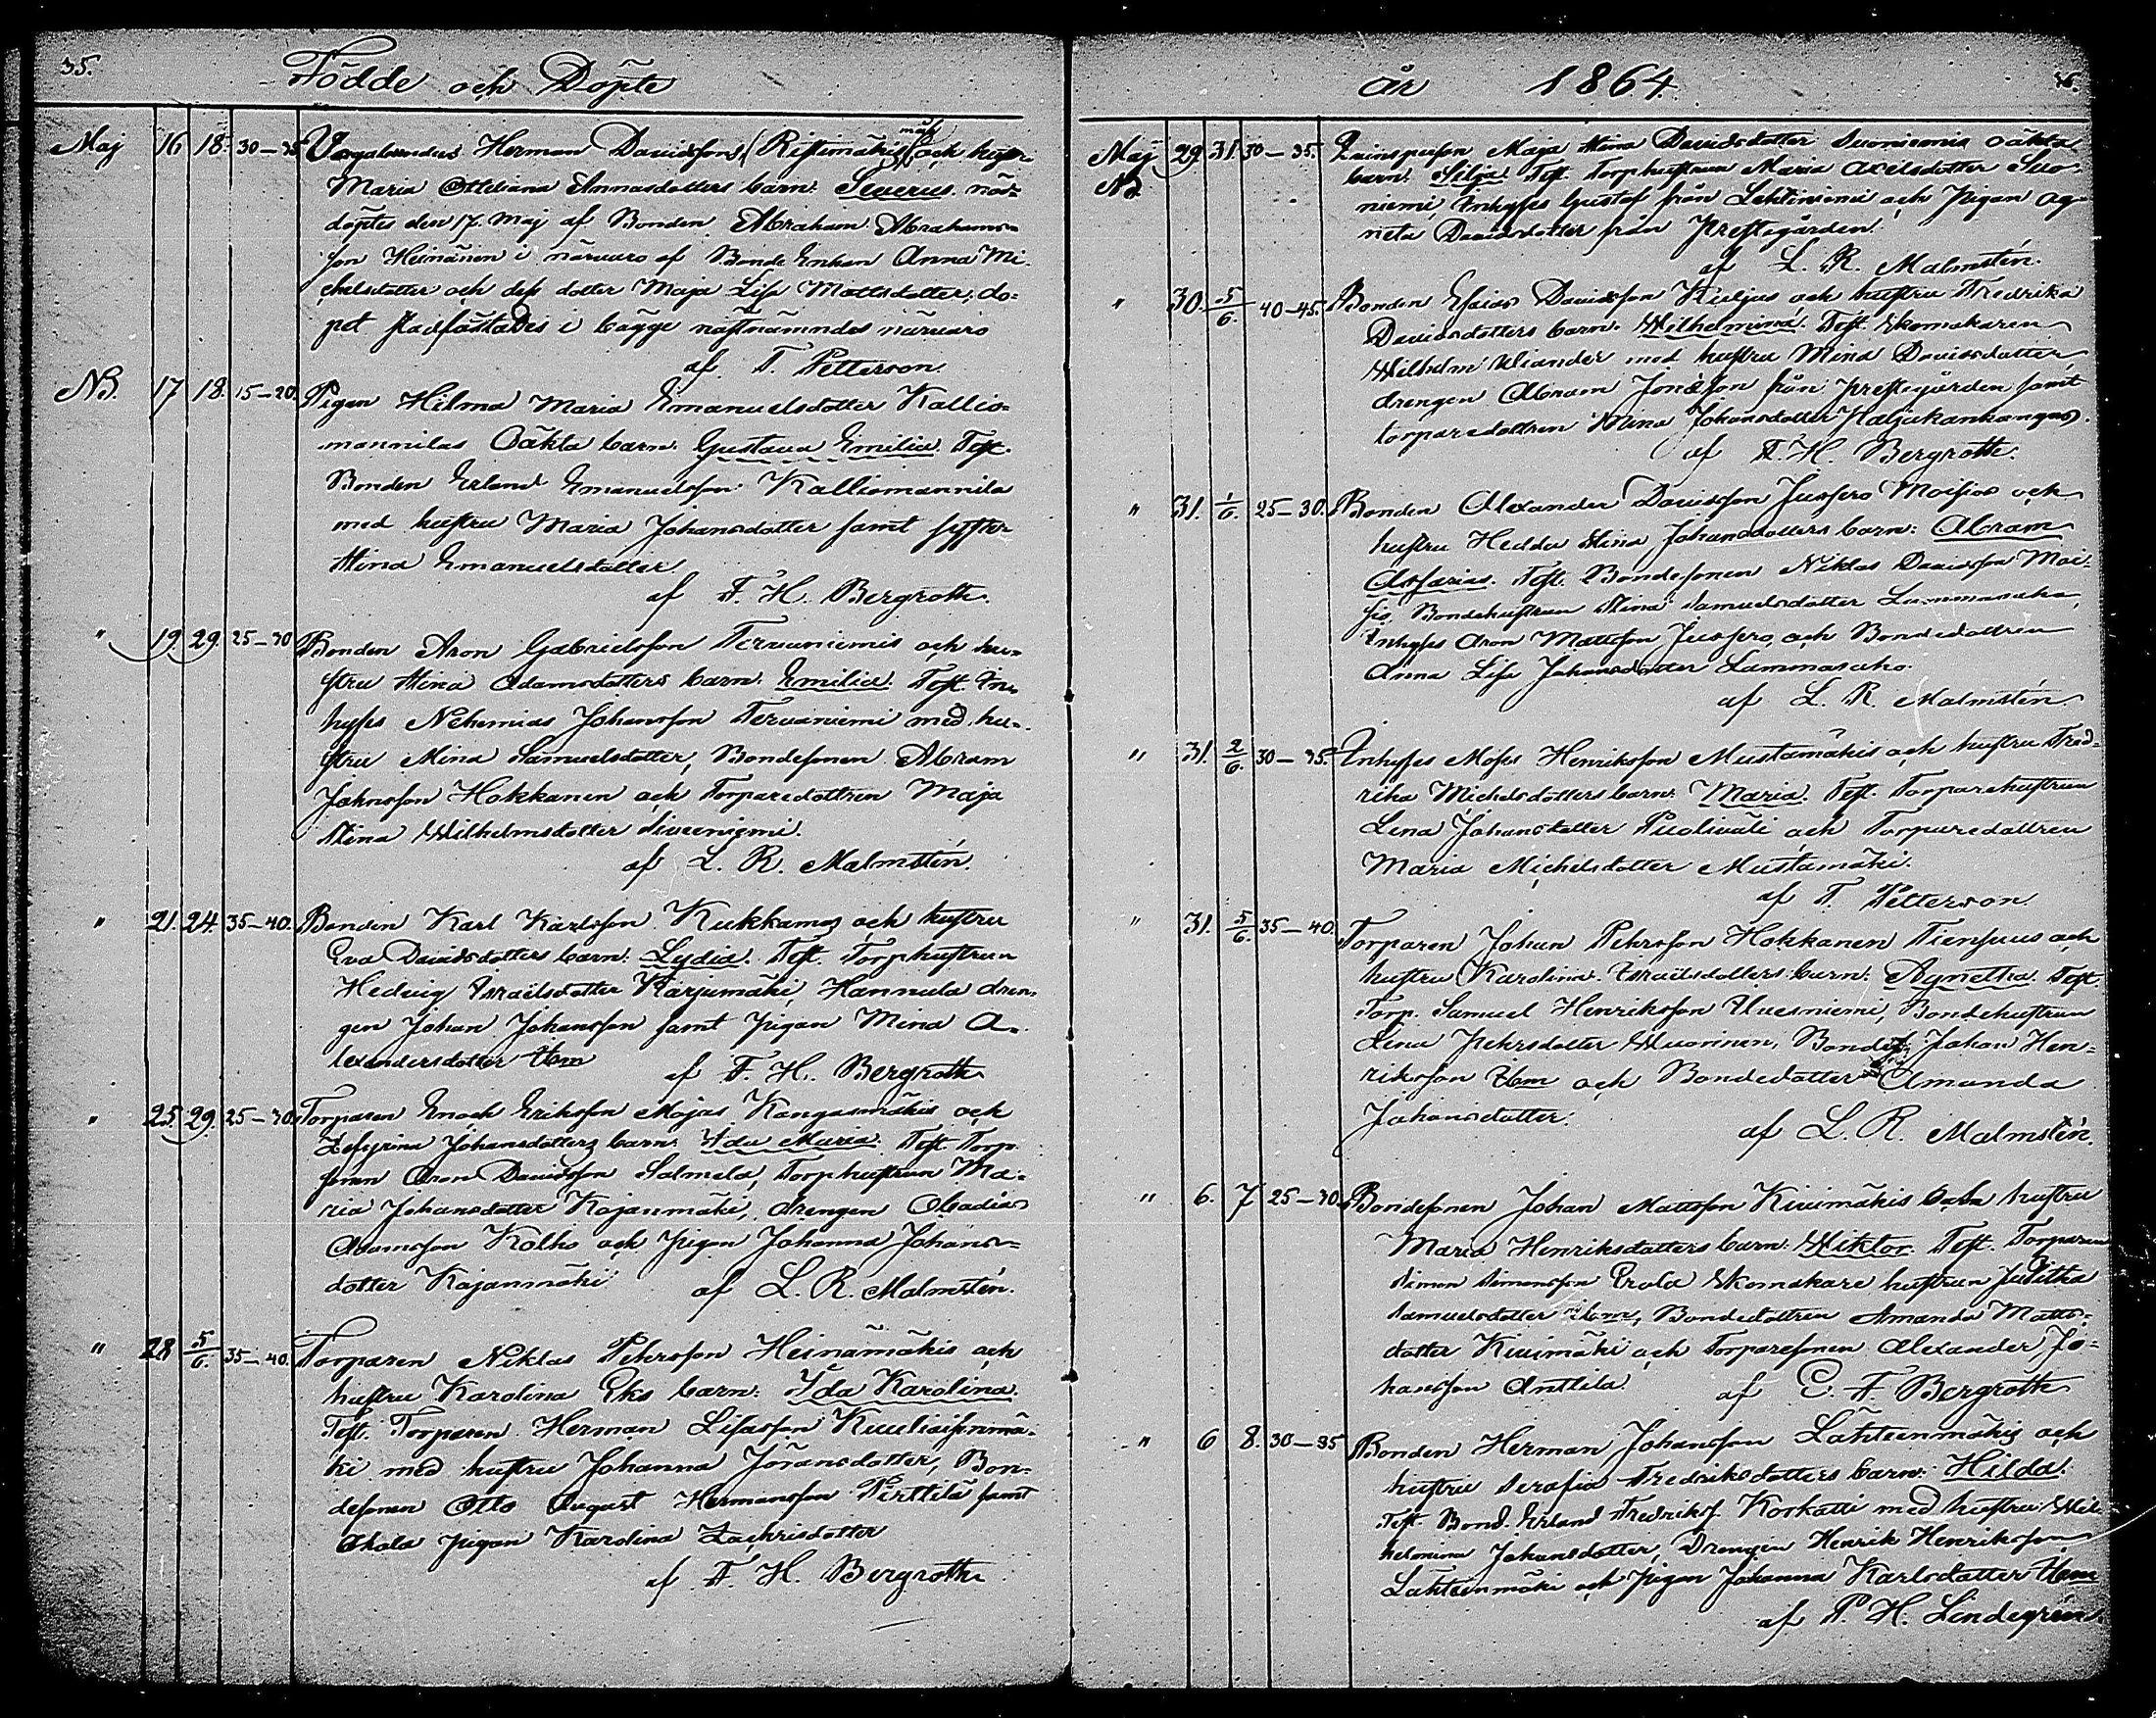 35.
Födde och Döpte
Maj 16 18. 30–35 Vagabundus Herman Davidsson, (Ristimäkis) och hustr.
Maria Ottiliana Annasdotters barn: Severus. nöd-
döptes den 17. Maj af Bonden Abraham Abrahams-
son Heinänen i närvaro af Bonde Enkan Anna Mi-
chelsdotter och dess dotter Maja Lisa Mattsdotter; do-
pet stadfästades i bägge näst nämndas närvaro
af F. Petterson
NB. 17 18. 15–20. Pigan Hilma Maria Emanuelsdotter Kallio-
mannilas Oäkta barn: Gustava Emilia. Test.
Bonden Erland Emanuelsson Kalliomannila
med hustru Maria Johansdotter samt syster
Stina Emanuelsdotter
af F. H. Bergroth.
" 19. 29. 25–30 Bonden Aron Gabrielsson Tervaniemis och hu-
stru Stina Adamsdotters barn: Emilia. Test. In-
hyses Nehemias Johansson Tervaniemi med hu-
stru Mina Samuelsdotter, Bondesonen Abram
Johnsson Hokkanen och Torparedottren Maja
Stina Wilhelmsdotter
af L. R. Malmstén.
" 21. 24. 35–40. Bonden Karl Karlsson Kukkamos och hustru
Eva Davidsdotters barn: Lydia. Test. Torphustrun
Hedvig Israelsdotter Karjumäki, Hannula dren-
gen Johan Johansson samt pigan Mina A-
lexandersdotter ibm
af F. H. Bergroth
" 25. 29. 25–30. Torparen Enoch Eriksson Majas Kangasmäkis och
Zefyrina Johansdotters barn: Ida Maria. Test. Torp.
sonen Aron Davidsson Salmela, Torphustrun Ma-
ria Johansdotter Kajanmäki, drengen Obadias
Adamsson Kolho och pigan Johanna Johans-
dotter Kajanmäki
af L. R. Malmstén.
" 28 5/6. 35–40. Torparen Niklas Pehrsson Heinämäkis och
hustru Karolina Eks barn: Ida Karolina.
Test. Torparen Herman Lisasson
ki med hustru Johanna Jöransdotter, Bon-
desonen Otto August Hermansson Pirttilä samt
pigan Karolina Zachrisdotter
af F. H. Bergroth
år 1864.
36.
Maj 29. 31. 30–35. Qvinsperson Maja Stina Davidsdotter Suoniemis oäkta
NB. barn: Silja. Test. Torphustrun Maria Axelsdotter Suo-
niemi, Inhyses Gustaf från Lehtiniemi och Pigan Ag-
neta Davidsdotter från Prestegården.
af L. R. Malmstén.
" 30. 5/6. 40–45. Bonden Esaias Davidsson Kuljus och hustru Fredrika
Davidsdotters barn: Wilhelmina. Test. Skomakaren
Wilhelm Wiander med hustru Mina Davidsdotter,
drengen Abram Jonasson från prestegården samt
torparedottren Mina Johansdotter Haljukankangas
af F. H. Bergroth.
" 31. 1/6. 25–30. Bonden Alexander Davidsson Jussero Moisios och
hustru Hedda Stina Johansdotters barn: Abram
Asfarias. Test. Bondesonen Niklas Davidsson Moi-
sio, Bondehustrun Stina Samuelsdotter Lammasaho,
Inhyses Aron Mattsson Jussero, och Bondedottren
Anna Lisa Johansdotter Lammasaho.
af L. R. Malmstén
" 31. 2/6. 30–35. Inhyses Moses Henriksson Mustamäkis och hustru Fred-
rika Michelsdotters barn: Maria. Test. Torparehustrun
Lena Johansdotter Puoliväli och Torparedottren
Maria Michelsdotter Mustamäki.
af F. Petterson
" 31. 5/6. 35–40. Torparen Johan Pehrsson Hokkanen Tiensuus och
hustru Karolina Israelsdotters barn: Agnetha. Test.
Torp. Samuel Henriksson Uuesniemi, Bondehustrun
Lena Pehrsdotter Wuorinen, Bondes. Johan Hen-
riksson ibm och Bondedotter Amanda
Johansdotter.
af L. R. Malmstén.
" 6. 7 25–30. Bondesonen Johan Mattsson Kivimäkis och hustru
Maria Henriksdotters barn: Wiktor. Test. Torparen
Simon Simonsson Erola Skomakare hustrun Juditha
Samuelsdotter ibm, Bondedottren Amanda Matts-
dotter Kivimäki och Torparesonen Alexander Jo-
hansson Anttila.
af E. F. Bergroth
" 6 8. 30–35 Bonden Herman Johansson Lähteenmäkis och
hustru Serafia Fredriksdotters barn: Hilda.
Test. Bond. Erland Fredrikss. Korkatti med hustru Wil-
helmina Johansdotter, Drengen Henrik Henriksson
Lähteenmäki och pigan Johanna Karlsdotter ibm
af P. H. Lindegrén.